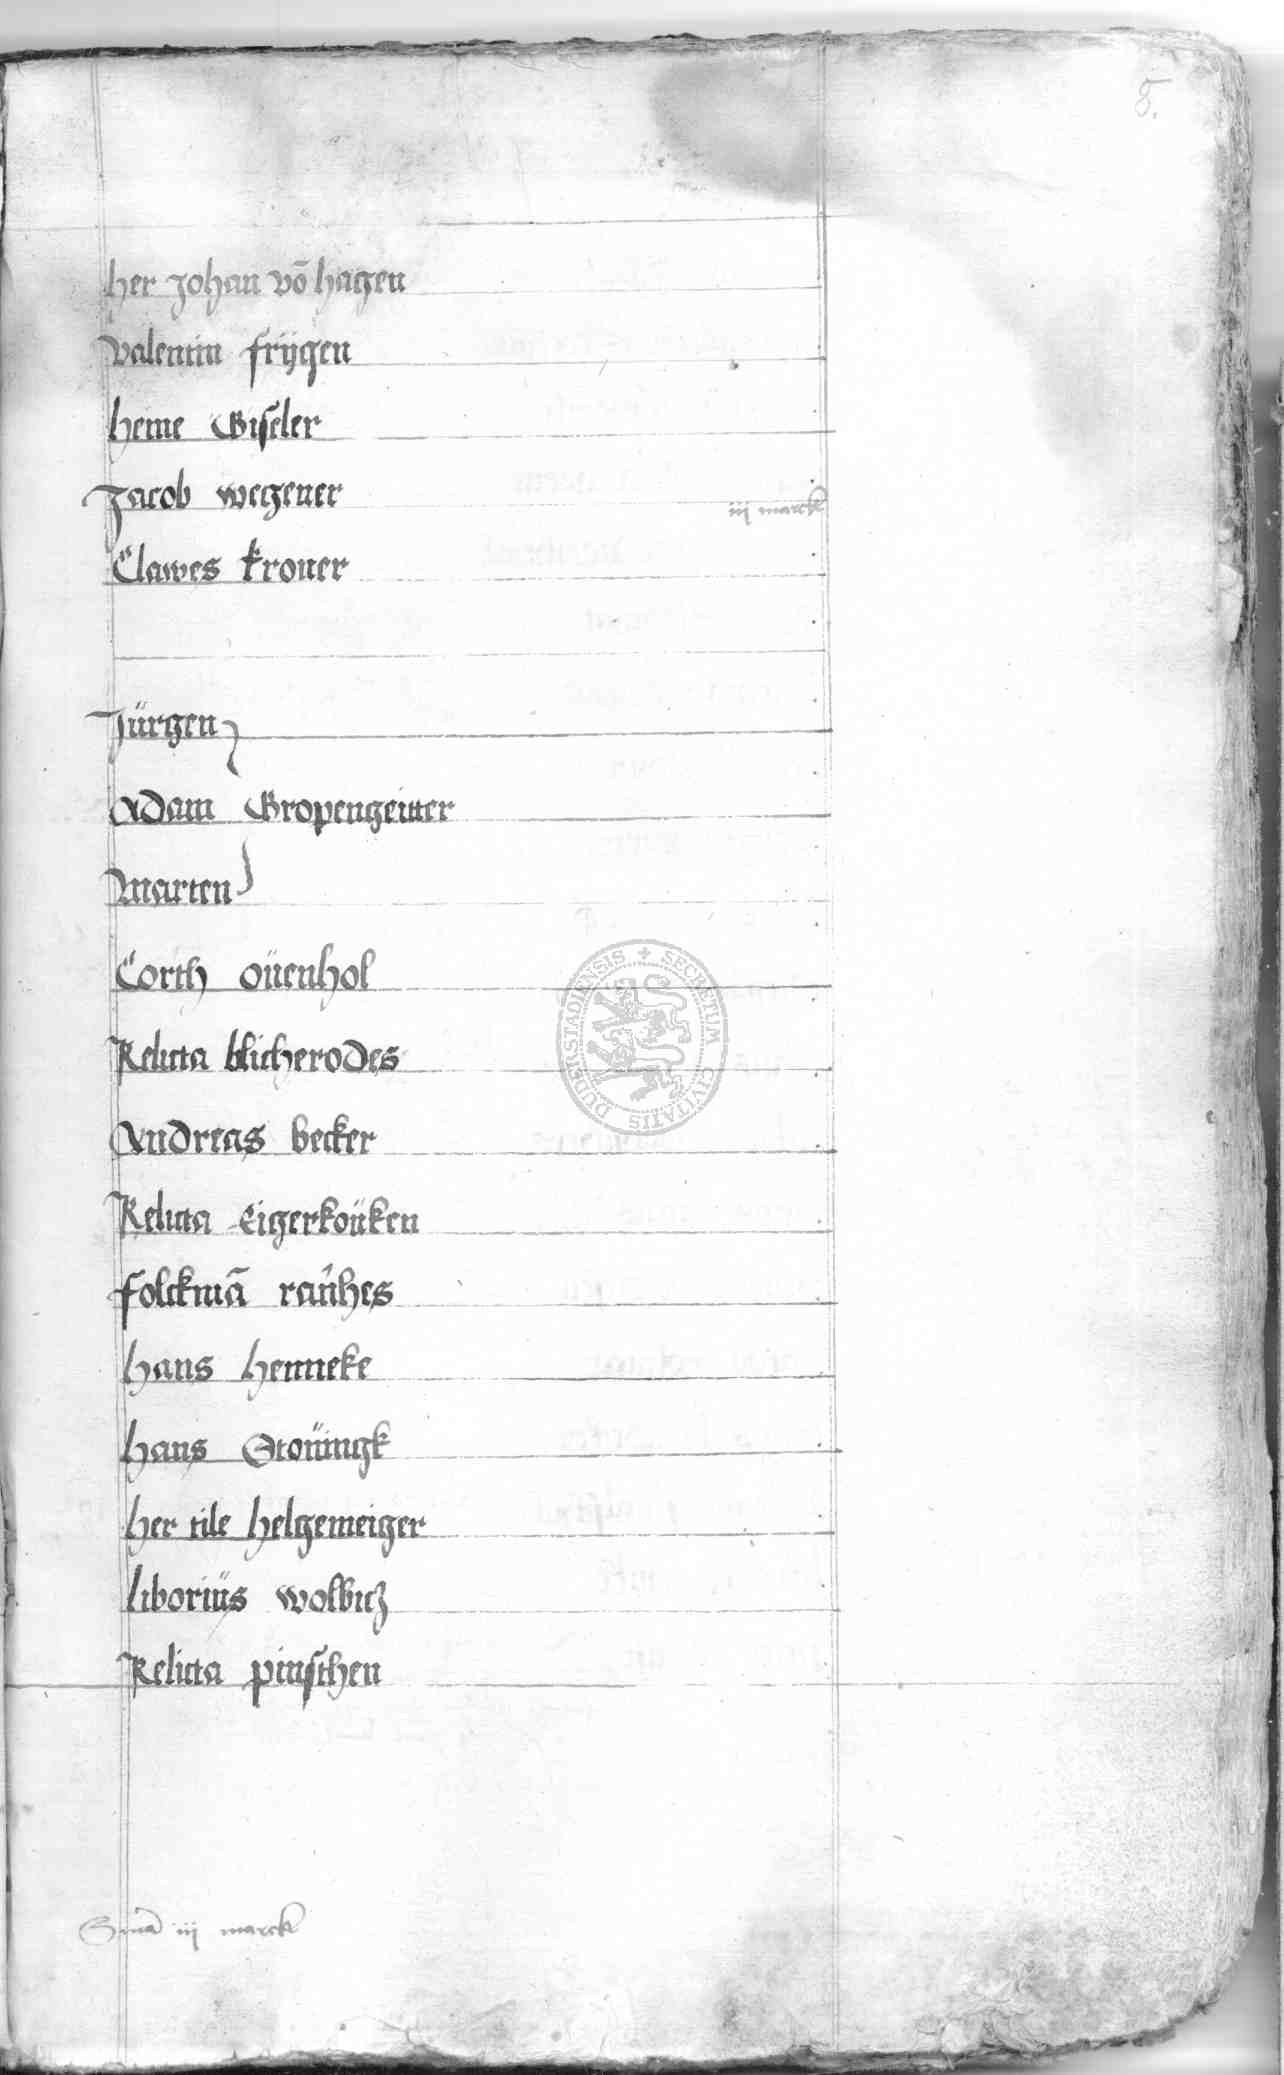 5.
her Johan vō hagen
Valentin frÿgen
heine Giseler
Jacob wegener
iij marck
Clawes kroner
Jürgen
Adam Gropengeiter
Marten
Corth oüenhol
Relicta blicherodes
Andreas becker
Relicta Eigerkoüken
folckmā
hans henneke
hans Stoüingk
her tile helgemeiger
liboriüs wolbitz
Relicta pinschen
Sūma iij marck
SECRETUM CIVITATIS DUDERSTADIENSIS